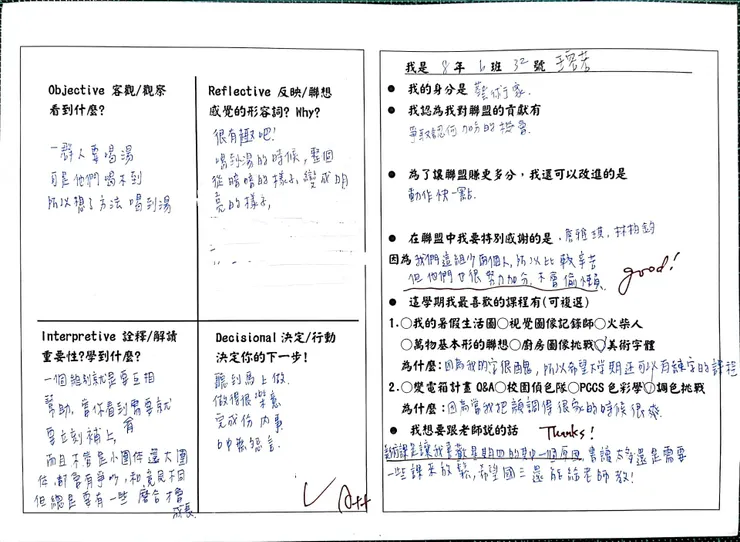 Objective 客觀/觀察
看到什麼?
一群人要喝湯
可是他們喝不到
所以想了方法 喝到湯
Reflective 反映/聯想
感覺的形容詞? Why?
很有趣吧!
喝到湯的時候,整個
從暗暗的樣子 變成明
亮的樣子,
Interpretive 詮釋/解讀
重要性?學到什麼?
一個組別就是要互相
幫助,當你看到需要就
要立刻補上,
而且不管是小團体 還大團
体 都會有爭吵,和意見不相
但總是要有一些 磨合才會
成長
Decisional 決定/行動
決定你的下一步!
聽到馬上做.
做得很樂意
完成份內事
口中無惡言.
我是 8 年 6 班 32 號
● 我的身份是 藝術家.
● 我認為我對聯盟的貢獻有
爭取認何加分的機會.
● 為了讓聯盟賺更多分,我還可以改進的是
動作快一點.
● 在聯盟中我要特別感謝的是 . 林柏鈞
因為 我們這組少兩個人,所以比較辛苦
但他們也很努力加分,不會偷懶.
good!
● 這學期我最喜歡的課程有(可複選)
1.○我的暑假生活圈○視覺圖像記錄師○火柴人
○萬物基本形的聯想○廚房圖像挑戰○美術字體
為什麼:因為我的字很醜,所以希望下學期還可以有練字的課程
2.○變電箱計畫 Q&A○校園偵色隊○PCCS 色彩學○調色挑戰
為什麼:因為當我把顏調得很象的時候 很爽.
● 我想要跟老師說的話 Thanks!
美術課是讓我喜歡星期四的其中一項原因 書讀太多還是需要
一些課來放鬆,希望國三還能給老師教!
A++